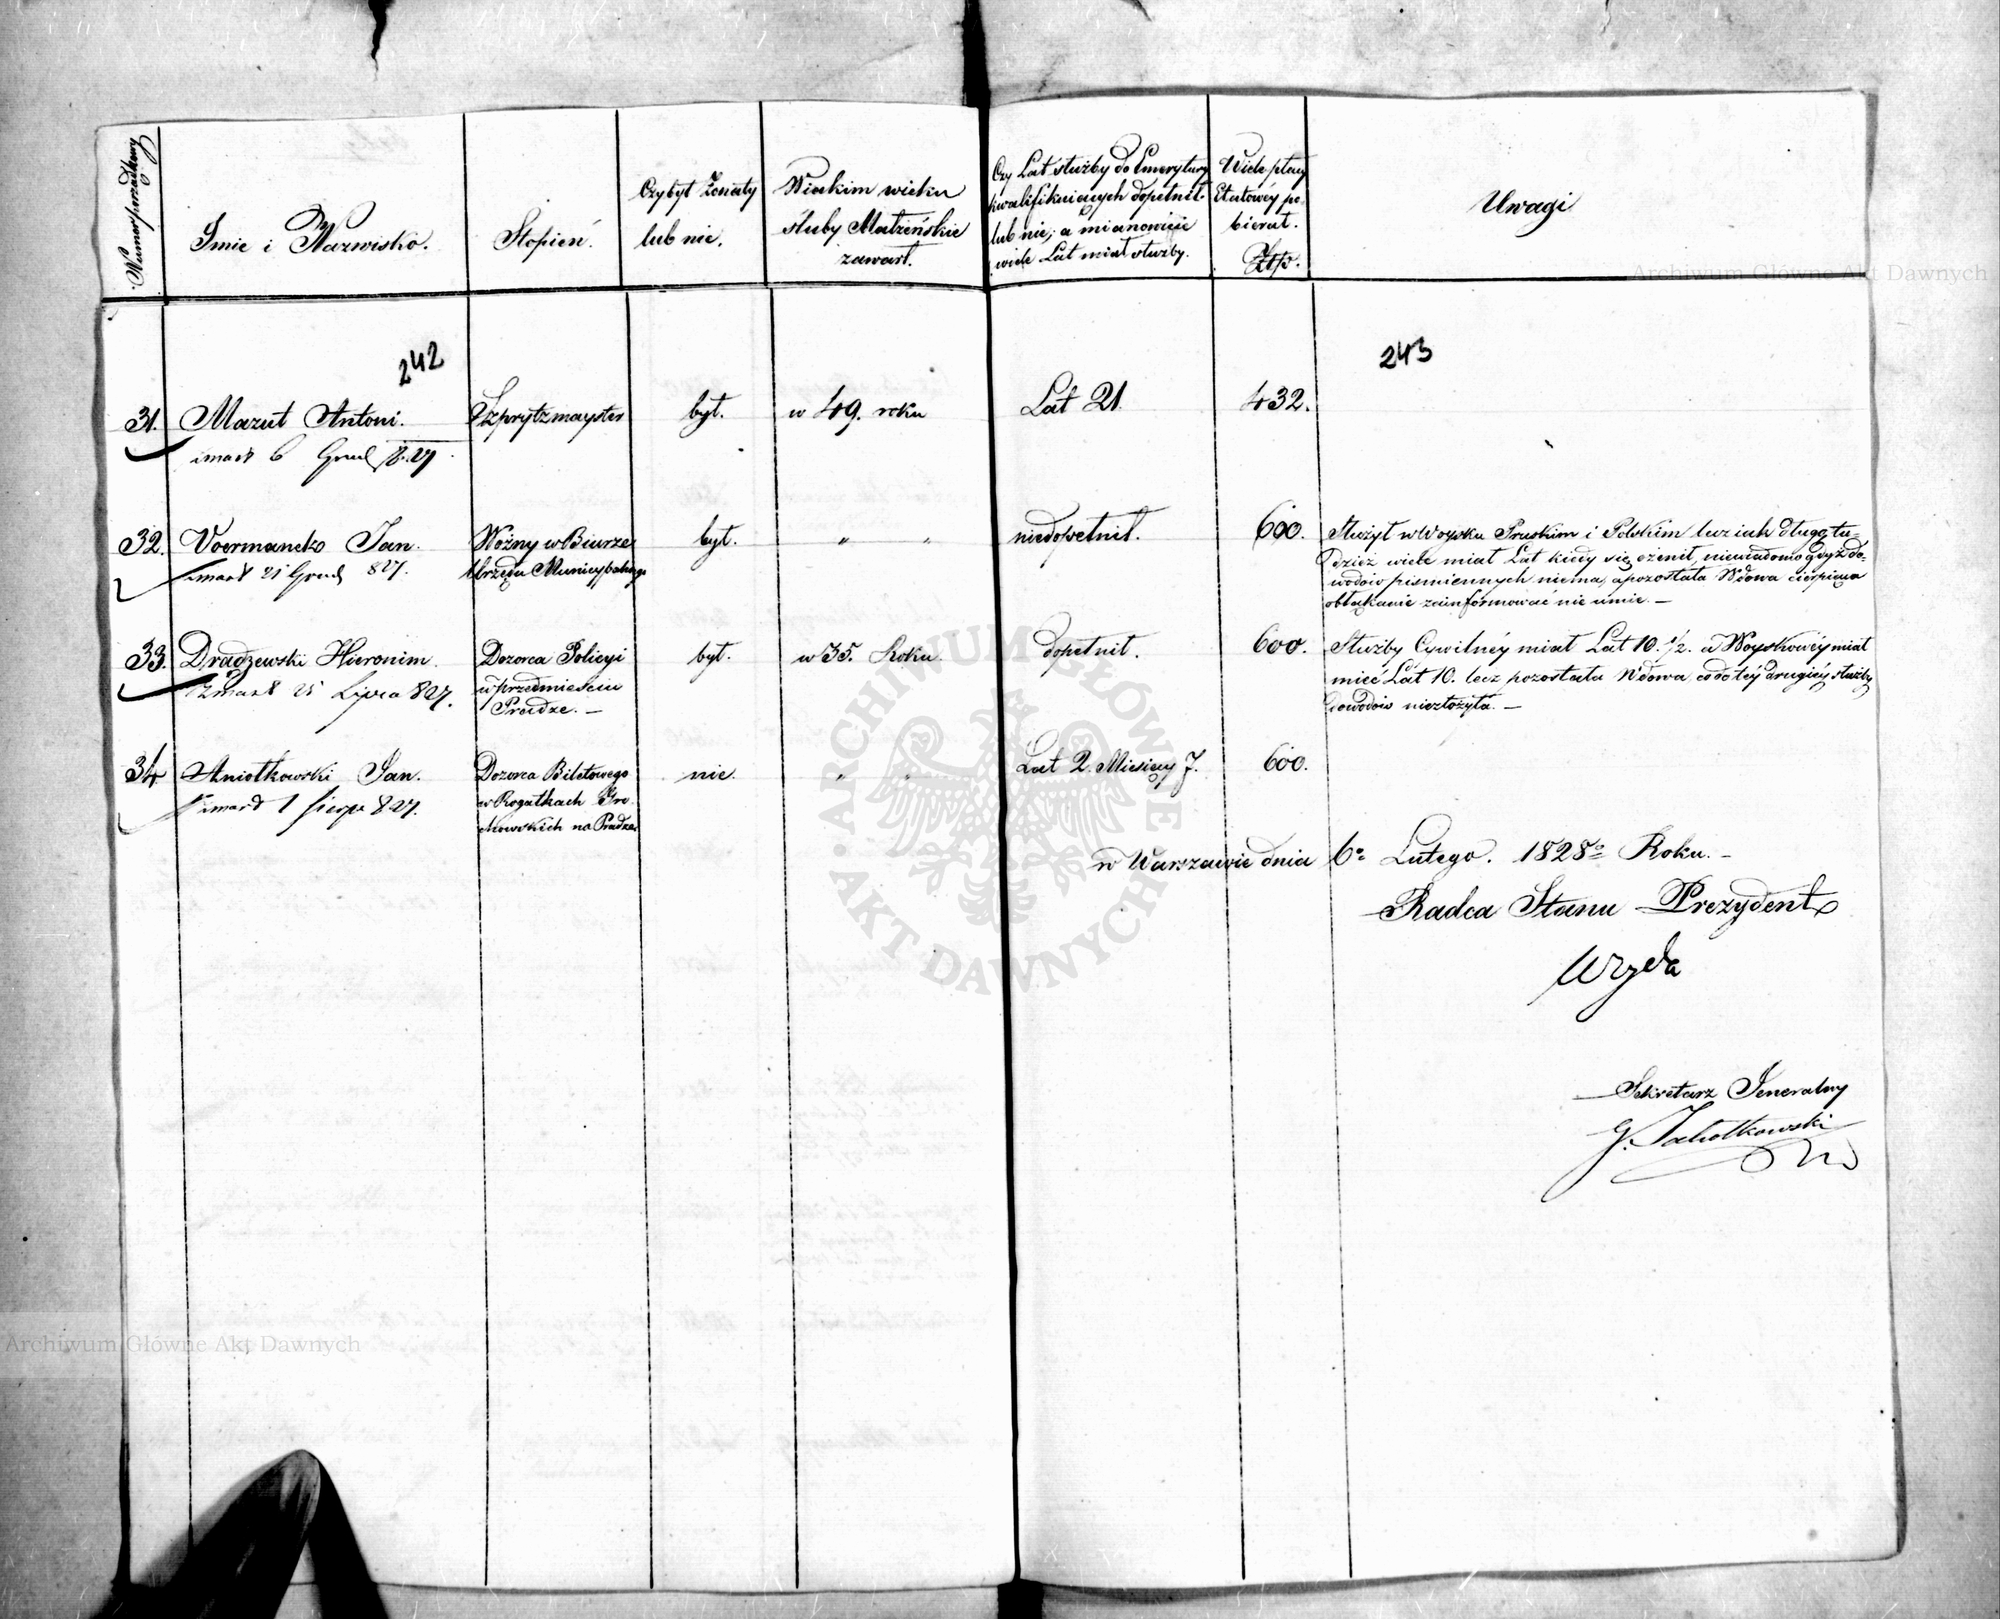 Numer porządkowy
Imie i Nazwisko.
Stopień.
Czy był Żonaty
lub nie.
W iakim wieku
śluby Małżeńskie
zawarł.
Czy Lat służby do Emerytury
kwalifikuiących dopełnił
lub nie; a mianowicie
wiele Lat miał służby.
Wiele płacy
Etatowéy po-
bierał.
Złp.
Uwagi
242
243
31. Mazut Antoni. Szprytzmayster był. w 49. roku Lat 21. 432.
zmarł 6 Grud 827.
32. Voermanek Jan. Woźny w Biurze był. " " niedopełnił. 600. Służył w Woysku Pruskim i Polskim lecz iak długo tu-
zmarł 21 Grud 827. Urzędu Municypalnego dzież wiele miał Lat kiedy się ożenił, niewiadomo gdyż do-
wodów piśmiennych niema, a pozostała Wdowa cierpiąca
obłąkanie zainformować nie umie. —
33. Drądzewski Hieronim. Dozorca Policyi był. w 35. Roku. dopełnił. 600. Służby Cywilnéy miał Lat 10. 1/2. a Woyskowéy miał
zmarł 25 Lipca 827. w przedmieściu mieć Lat 10. lecz pozostała Wdowa co do téy drugiéy służby
Pradze. — dowodów niezłożyła. —
34. Aniołkowski Jan. Dozorca Biletowego nie. " " Lat 2. Miesięcy 7. 600.
zmarł 1 Sierp 827. w Rogatkach Gro-
chowskich na Pradze
w Warszawie dnia 6º Lutego. 1828º Roku. —
Radca Stanu Prezydent
Woyda
Sekretarz Jeneralny
G. Jahołkowski
Archiwum Główne Akt Dawnych
Archiwum Główne Akt Dawnych
ARCHIWUM GŁÓWNE
AKT DAWNYCH